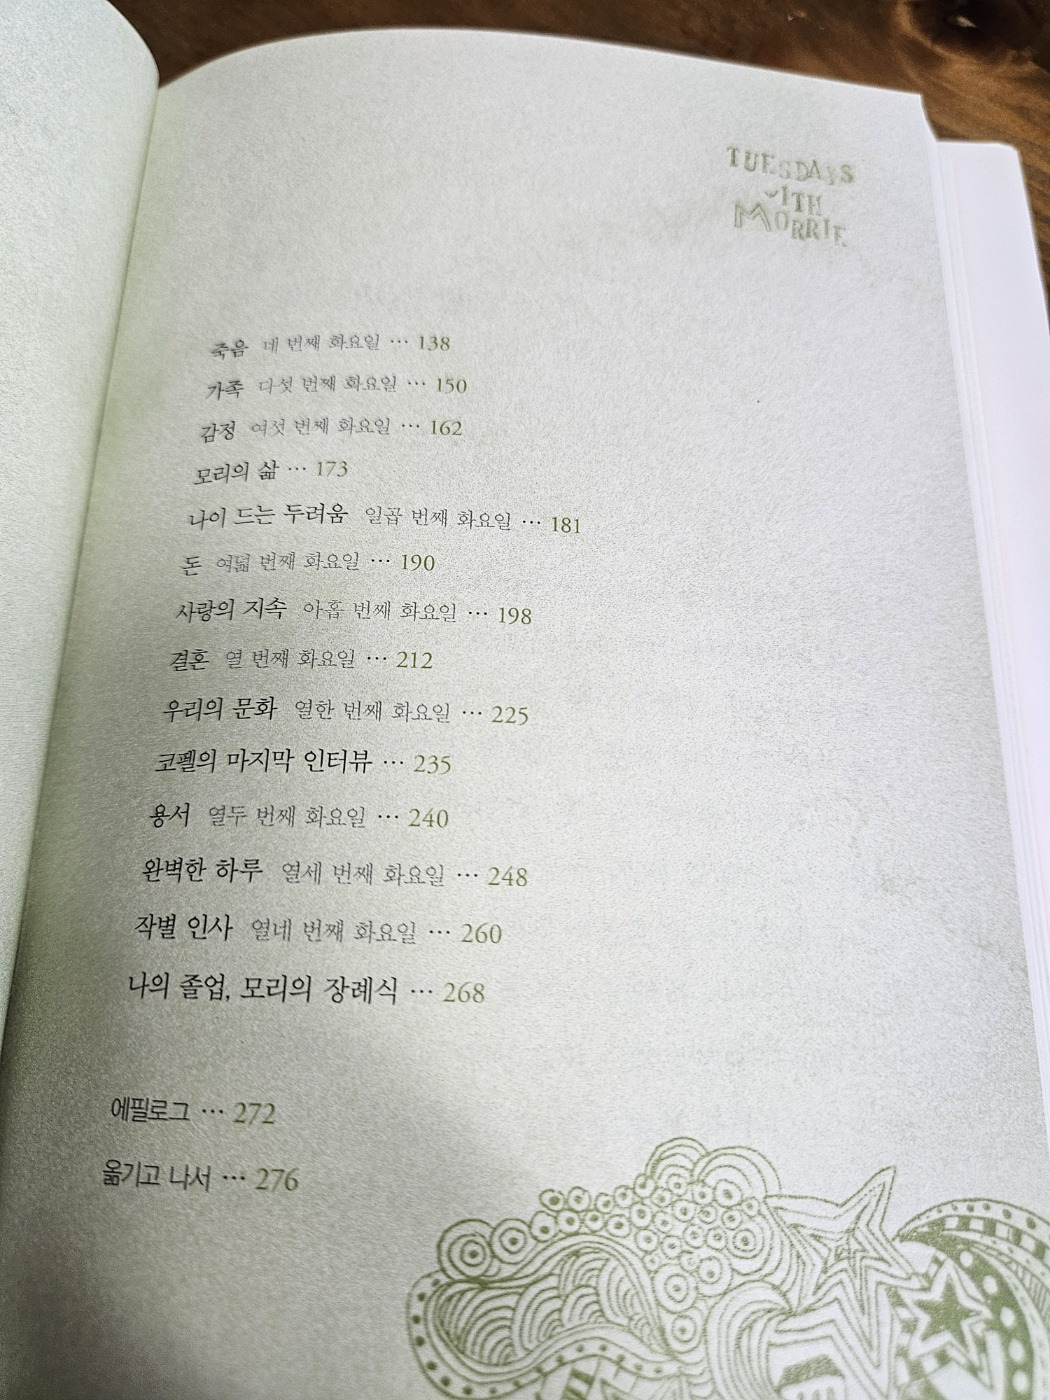 TUESDAYS
WITH
MORRIE
죽음 네 번째 화요일 … 138
가족 다섯 번째 화요일 … 150
감정 여섯 번째 화요일 … 162
모리의 삶 … 173
나이 드는 두려움 일곱 번째 화요일 … 181
돈 여덟 번째 화요일 … 190
사랑의 지속 아홉 번째 화요일 … 198
결혼 열 번째 화요일 … 212
우리의 문화 열한 번째 화요일 … 225
코펠의 마지막 인터뷰 … 235
용서 열두 번째 화요일 … 240
완벽한 하루 열세 번째 화요일 … 248
작별 인사 열네 번째 화요일 … 260
나의 졸업, 모리의 장례식 … 268
에필로그 … 272
옮기고 나서 … 276